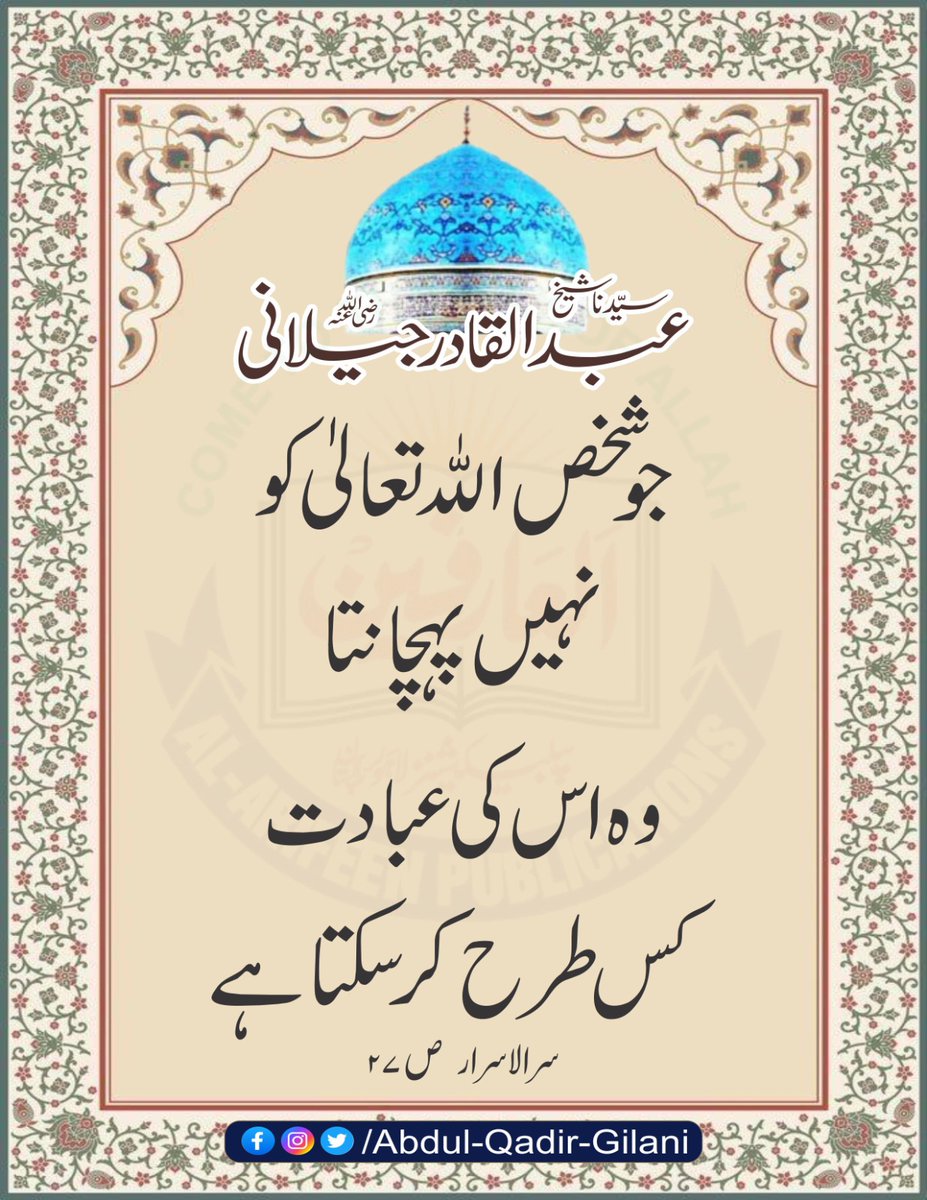 سیّدنا شیخ
عبدالقادر جیلانی رضی اللہ عنہ
جو شخص اللہ تعالیٰ کو
نہیں پہچانتا
وہ اس کی عبادت
کس طرح کر سکتا ہے
سرالاسرار ص ۲۷
العارفین
AL-ARFEEN PUBLICATIONS
/Abdul-Qadir-Gilani